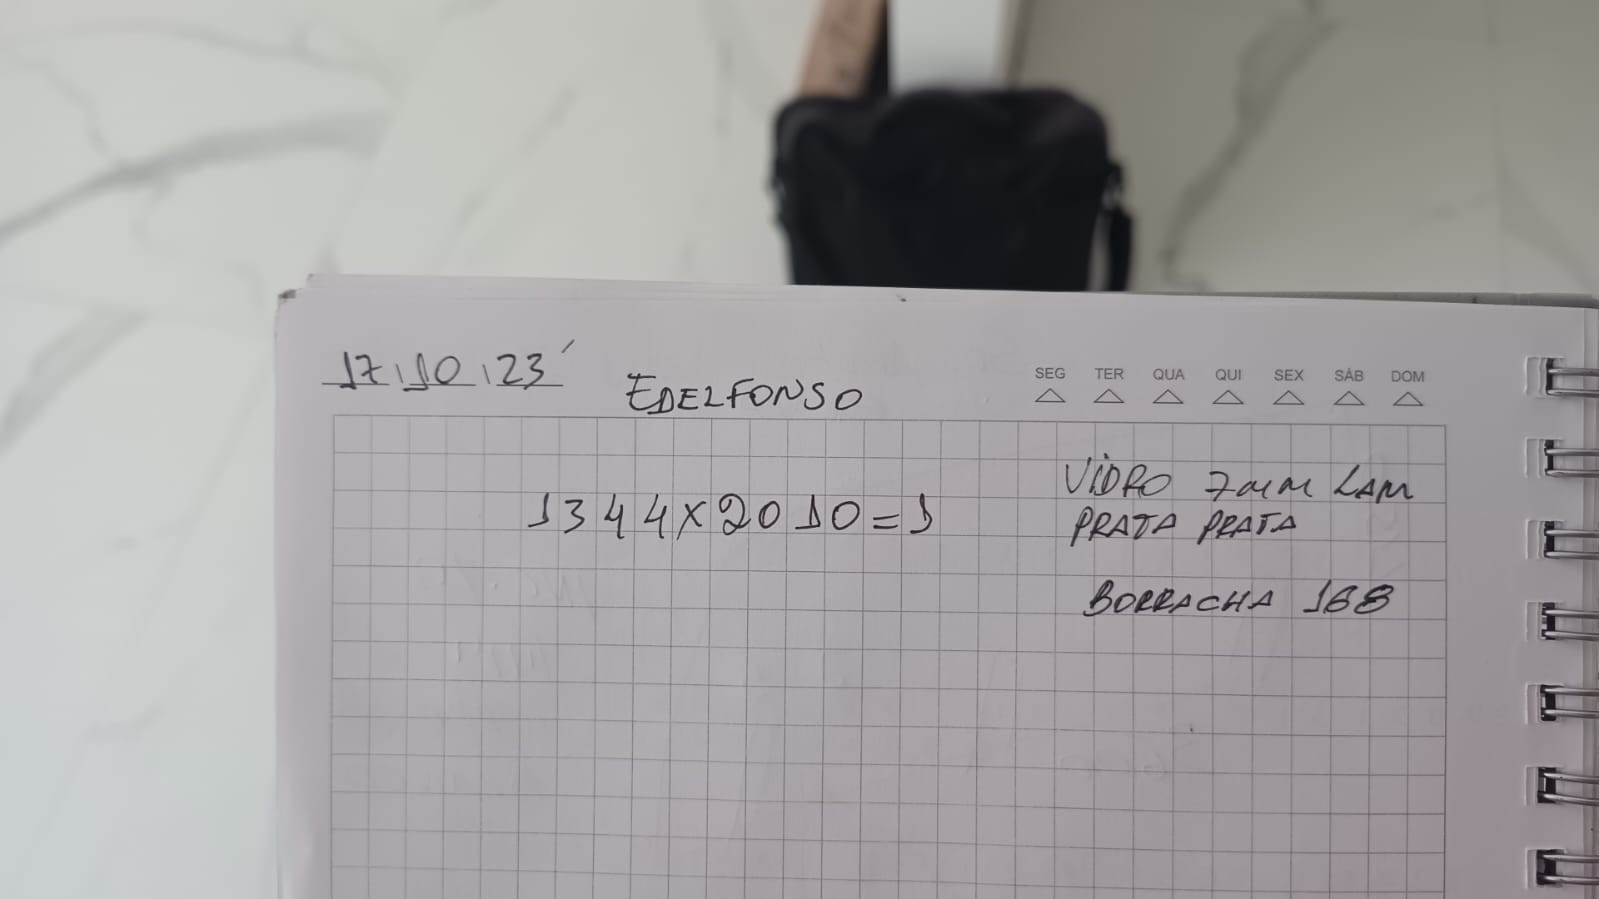 17/10/23
EDELFONSO
SEG TER QUA QUI SEX SÁB DOM
1344X2010=1
VIDRO 7mm LAM
PRATA PRATA
BORRACHA 168